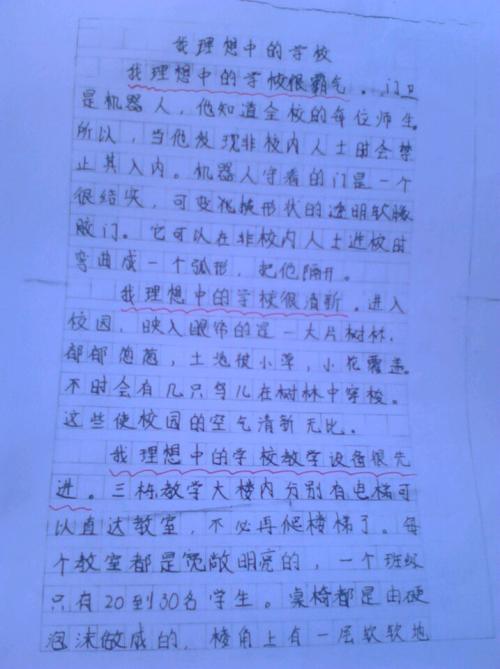 我理想中的学校
我理想中的学校很霸气。门卫
是机器人，他知道全校的每位师生。
所以，当他发现非校内人士时会禁
止其入内。机器人守着的门是一个
很结实，可变化换形状的透明软橡
胶门。它可以在非校内人士进校时
弯曲成一个弧形，把他隔开。
我理想中的学校很清新。进入
校园，映入眼帘的是一大片树林，
郁郁葱葱，土地被小草，小花覆盖。
不时会有几只鸟儿在树林中穿梭。
这些使校园的空气清新无比。
我理想中的学校教学设备很先
进。三栋教学大楼内分别有电梯可
以直达教室，不必再爬楼梯了。每
个教室都是宽敞明亮的，一个班级
只有20到30名学生。桌椅都是由硬
泡沫做成的，棱角上有一层软软地